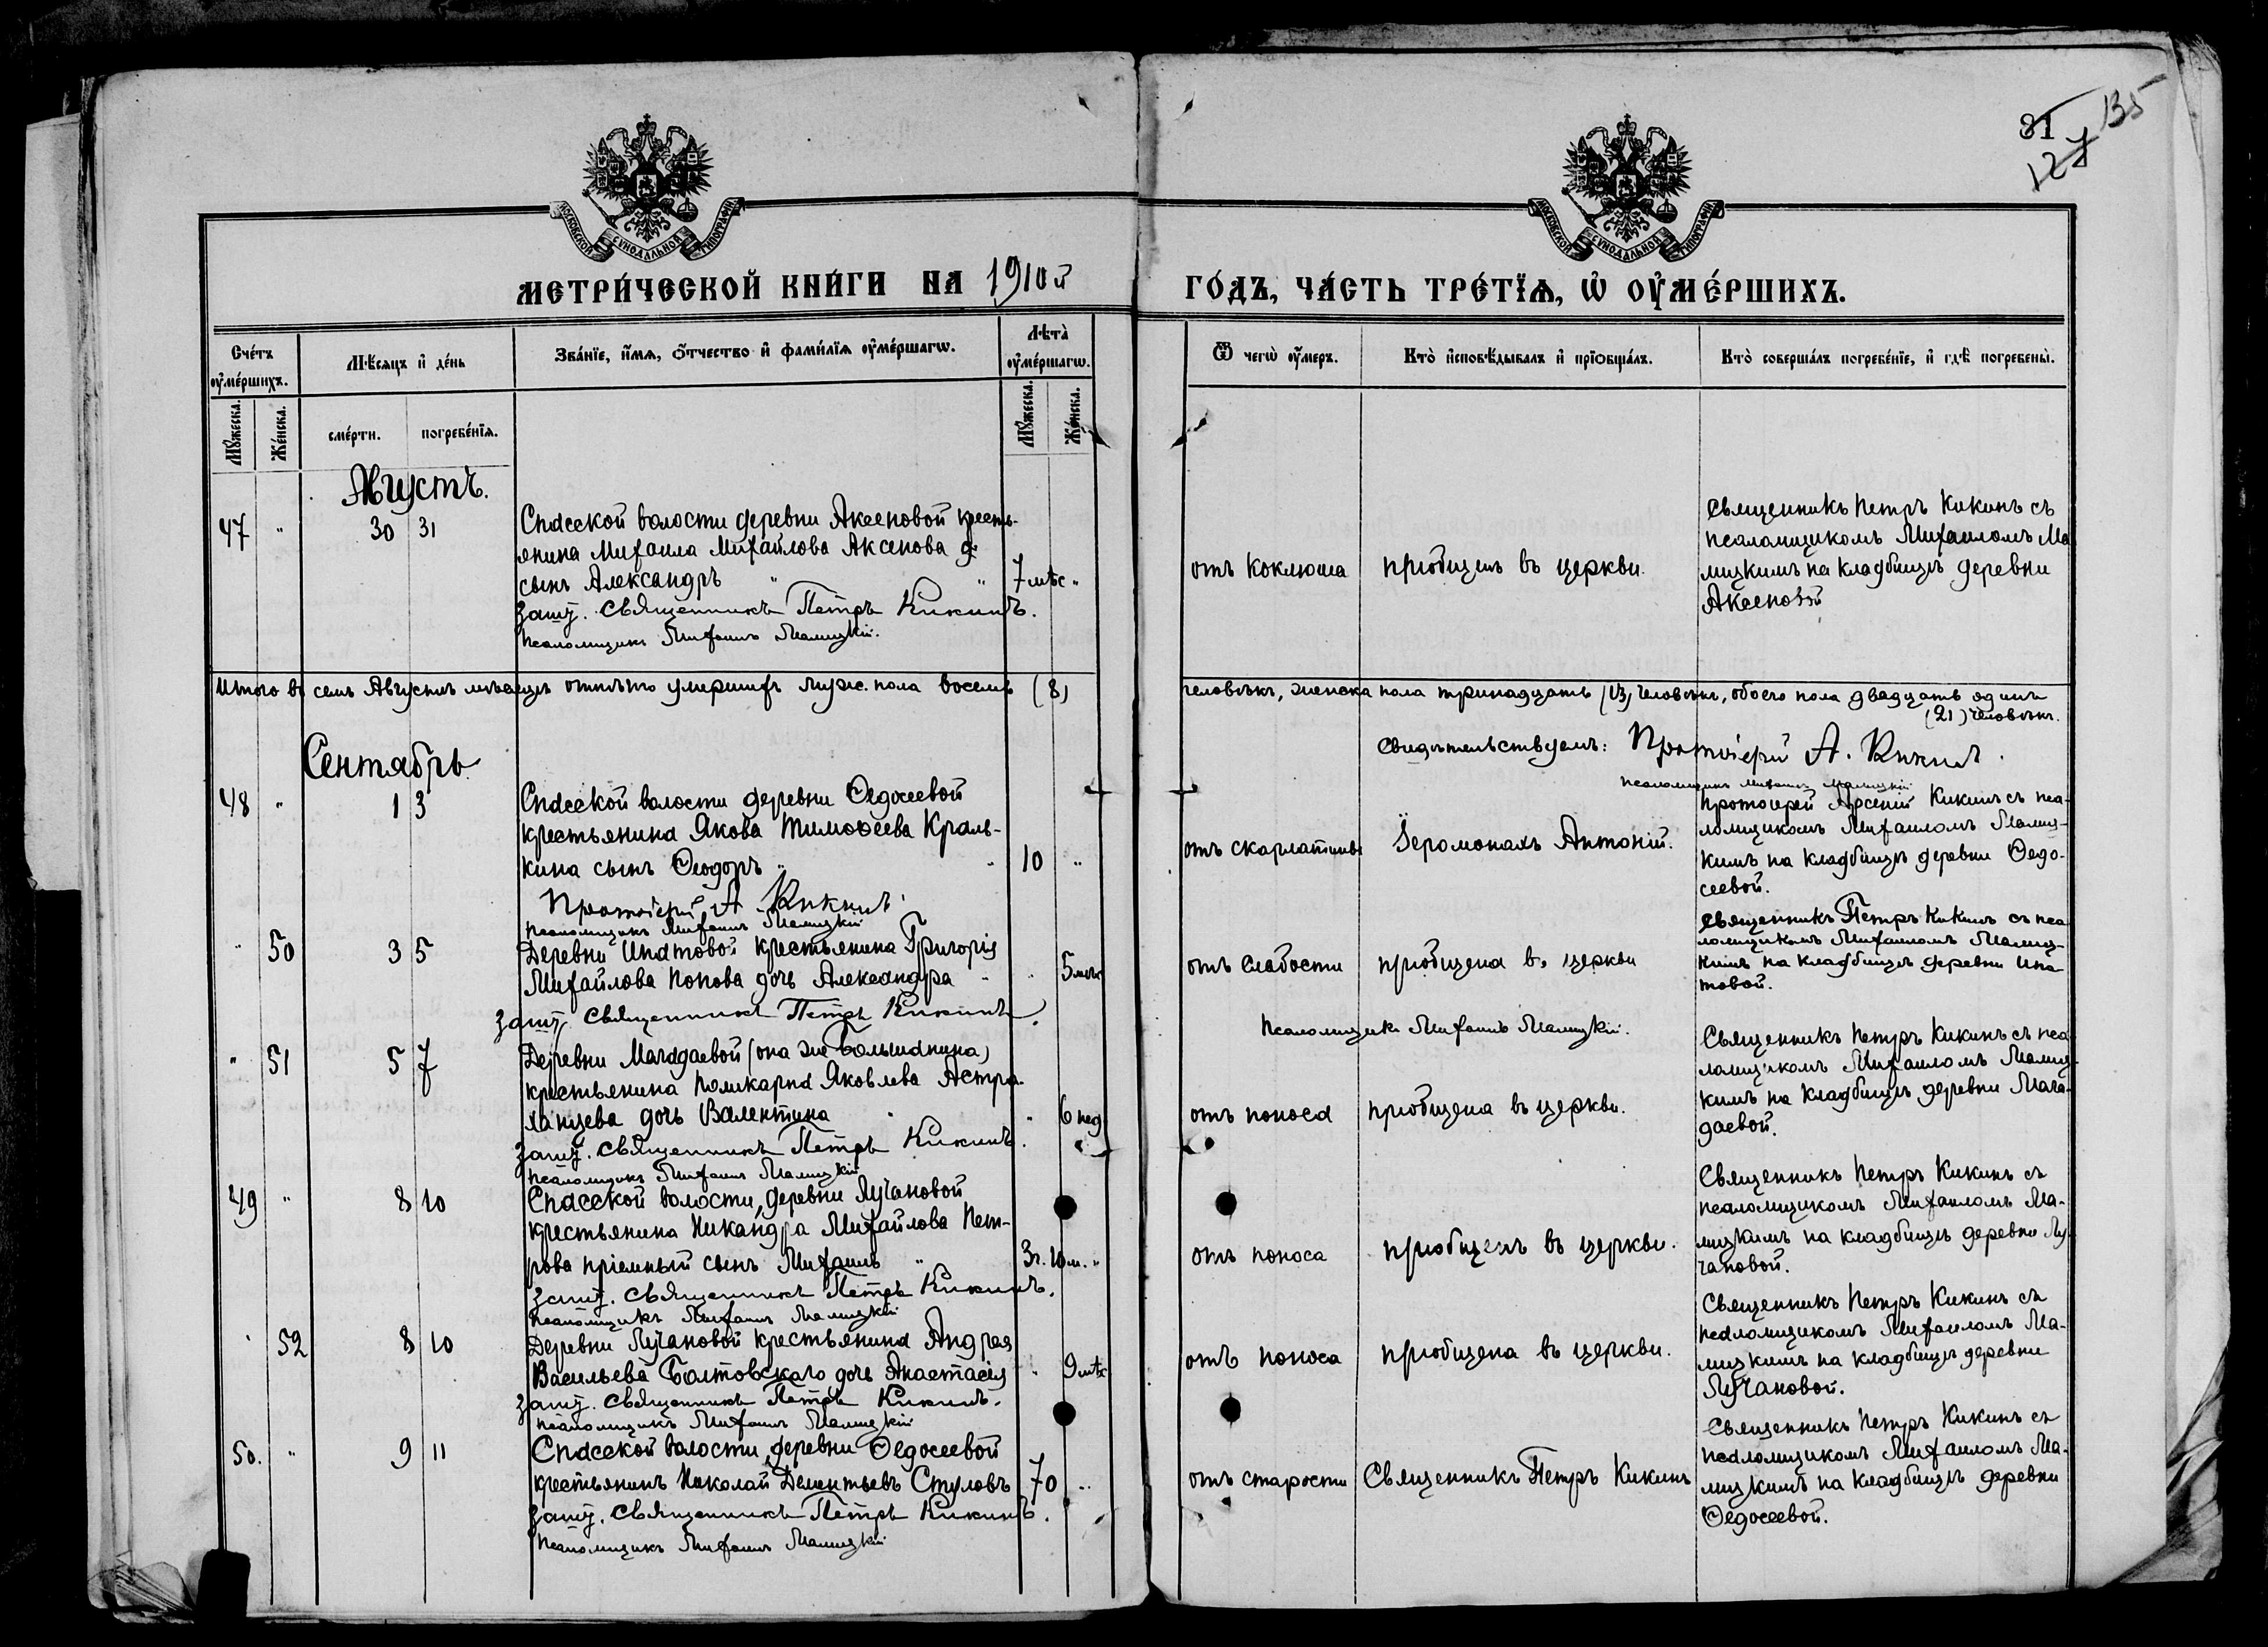 81
127
135
МОСКОВСКОЙ СУНОДАЛЬНОЙ ТИПОГРАФІИ
МОСКОВСКОЙ СУНОДАЛЬНОЙ ТИПОГРАФІИ
МЕТРИ́ЧЕСКОЙ КНИ́ГИ НА 1910й
ГО́ДЪ, ЧА́СТЬ ТРЕ́ТЇѦ, Ѡ҆ ОУ҆МЕ́РШИХЪ.
Сче́тъ оу҆ме́ршихъ.
Мѣ́сяцъ и҆ де́нь
Зва́нїе, и҆́мѧ, ѻ҆́тчество и҆ фами́лїѧ оу҆ме́ршагѡ.
Лѣта̀ оу҆ме́ршагѡ.
Ѿ чегѡ̀ оу҆́меръ.
Кто̀ и҆сповѣ́дывалъ и҆ прїѻбща́лъ.
Кто̀ соверша́лъ погребе́нїе, и҆ гдѣ̀ погребены̀.
Мꙋ́жеска.
Же́нска.
сме́рти.
погребе́нїѧ.
Мꙋ́жеска.
Же́нска.
Августъ.
47 " 30 31
Спасской волости деревни Аксеновой кресть-
янина Михаила Михайлова Аксенова
сынъ Александръ " " 7 мѣс "
Священникъ Петръ Кикинъ.
Псаломщикъ Михаилъ Малицкій.
отъ коклюша
пріобщенъ въ церкви.
Священникъ Петръ Кикинъ съ
псаломщикомъ Михаиломъ Ма
лицкимъ на кладбищѣ деревни
Аксеновой
Итого въ семъ Августѣ мѣсяцѣ отпѣто умершихъ муж. пола восемь (8)
человѣкъ, женска пола тринадцать (13) человѣкъ, обоего пола двадцать одинъ
(21) человѣкъ.
Свидѣтельствуемъ: Протоіерей А. Кикинъ.
псаломщикъ Михаилъ Малицкій
Сентябрь
48 " 1 3
Спасской волости деревни Ѳедосеевой
крестьянина Якова Тимоѳеева Краль-
кина сынъ Ѳеодоръ " " 10 "
Протоіерей А Кикинъ.
псаломщикъ Михаилъ Малицкій
отъ скарлатины
Іеромонахъ Антоній.
Протоіерей Арсеній Кикинъ съ пса-
ломщикомъ Михаиломъ Малиц-
кимъ на кладбищѣ деревни Ѳедо-
сеевой.
" 50 3 5
Деревни Ипатовой крестьянина Григорія
Михайлова Попова дочь Александра " " 5 мѣс
Священникъ Петръ Кикинъ.
Псаломщикъ Михаилъ Малицкій.
отъ слабости
пріобщена въ церкви
Священникъ Петръ Кикинъ съ пса
ломщикомъ Михаиломъ Малиц-
кимъ на кладбищѣ деревни Ипа
товой.
" 51 5 7
Деревни Магадаевой (она же Большанина)
крестьянина Поликарпа Яковлева Астра-
ханцева дочь Валентина " " 6 нед
Священникъ Петръ Кикинъ.
псаломщикъ Михаилъ Малицкій
отъ поноса
пріобщена въ церкви.
Священникъ Петръ Кикинъ съ пса
ломщикомъ Михаиломъ Малиц-
кимъ на кладбищѣ деревни Мага-
даевой.
49 " 8 10
Спасской волости, деревни Лучановой
крестьянина Никандра Михайлова Пет-
рова пріемный сынъ Михаилъ " 3 г. 10 м. "
Священникъ Петръ Кикинъ.
Псаломщикъ Михаилъ Малицкій
отъ поноса
пріобщенъ въ церкви.
Священникъ Петръ Кикинъ съ
псаломщикомъ Михаиломъ Ма-
лицкимъ на кладбищѣ деревни Лу
чановой.
" 52 8 10
Деревни Лучановой крестьянина Андрея
Васильева Балтовскаго дочь Анастасія " 9 мѣс
Священникъ Петръ Кикинъ.
псаломщикъ Михаилъ Малицкій
отъ поноса
пріобщена въ церкви.
Священникъ Петръ Кикинъ съ
псаломщикомъ Михаиломъ Ма-
лицкимъ на кладбищѣ деревни
Лучановой.
50. " 9 11
Спасской волости, деревни Ѳедосеевой
крестьянинъ Николай Дементьевъ Стуловъ 70 "
Священникъ Петръ Кикинъ.
Псаломщикъ Михаилъ Малицкій
отъ старости
Священникъ Петръ Кикинъ
Священникъ Петръ Кикинъ съ
псаломщикомъ Михаиломъ Ма-
лицкимъ на кладбищѣ деревни
Ѳедосеевой.